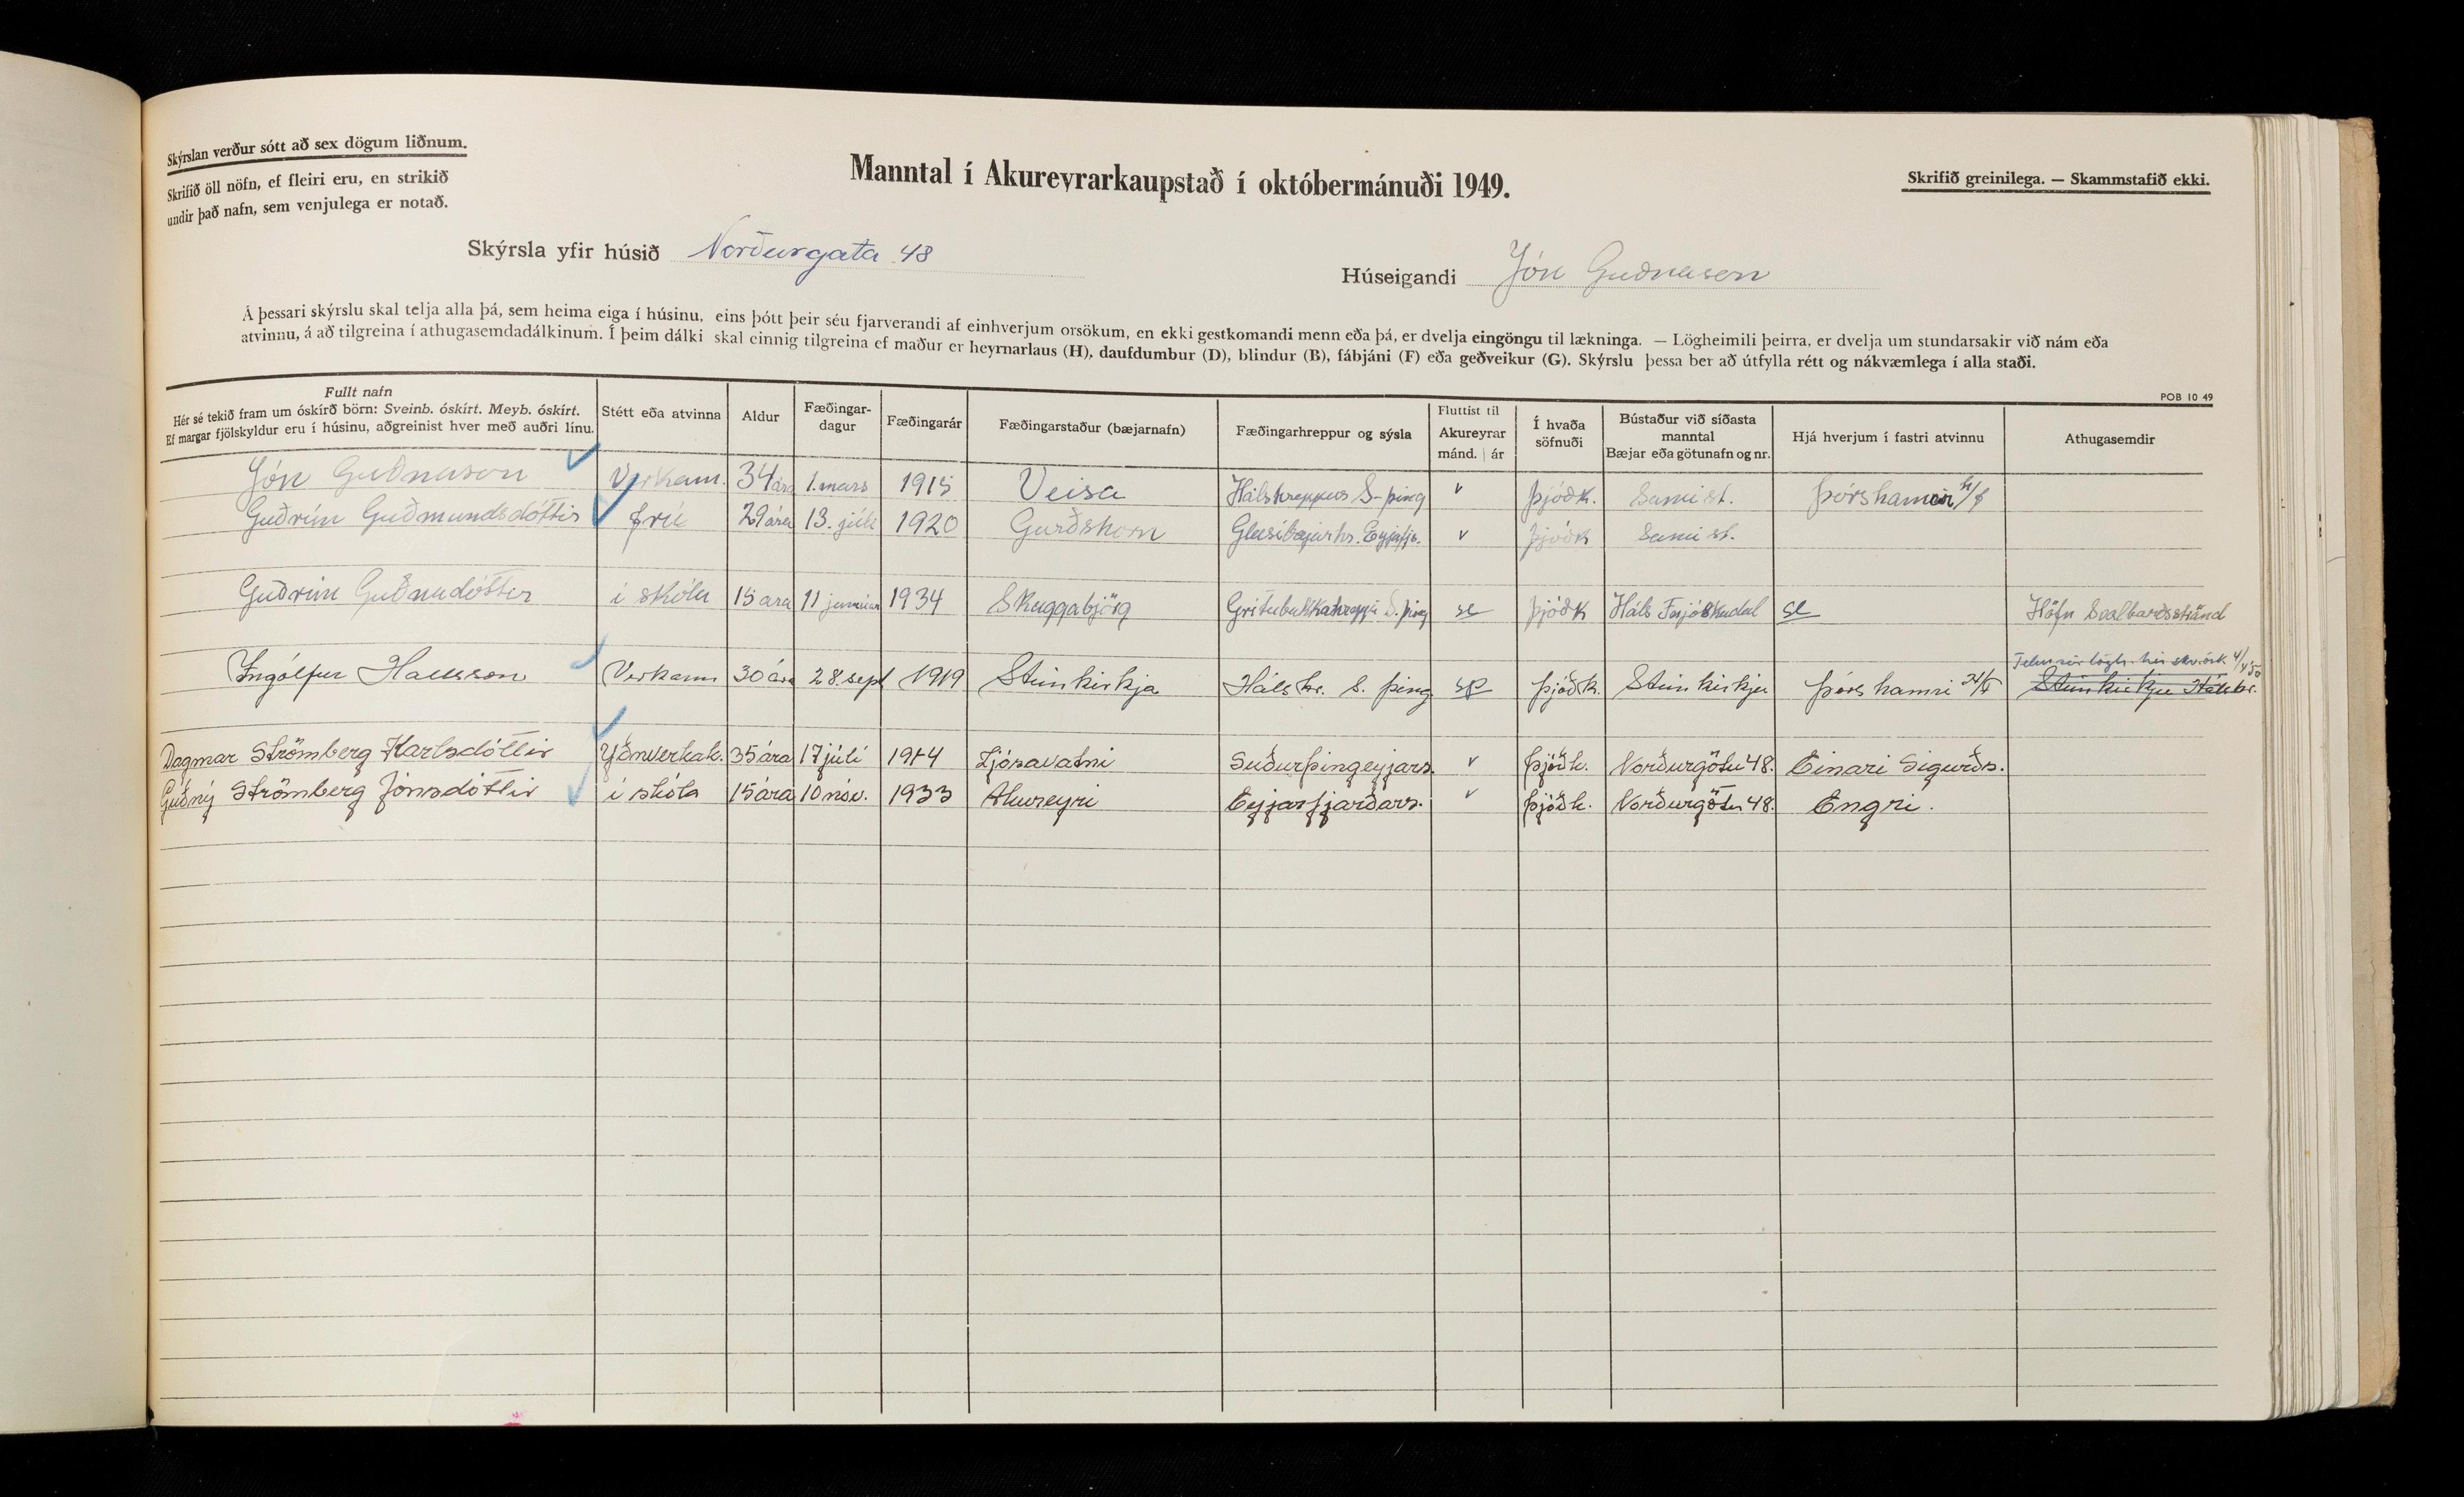 Skýrslan verður sótt að sex dögum liðnum.
Skrifið öll nöfn, ef fleiri eru, en strikið
undir það nafn, sem venjulega er notað.
Manntal í Akureyrarkaupstað í októbermánuði 1949.
Skrifið greinilega. — Skammstafið ekki.
Skýrsla yfir húsið Norðurgata 48
Húseigandi Jón Guðnason
Á þessari skýrslu skal telja alla þá, sem heima eiga í húsinu, eins þótt þeir séu fjarverandi af einhverjum orsökum, en ekki gestkomandi menn eða þá, er dvelja eingöngu til lækninga. — Lögheimili þeirra, er dvelja um stundarsakir við nám eða
atvinnu, á að tilgreina í athugasemdadálkinum. Í þeim dálki skal einnig tilgreina ef maður er heyrnarlaus (H), daufdumbur (D), blindur (B), fábjáni (F) eða geðveikur (G). Skýrslu þessa ber að útfylla rétt og nákvæmlega í alla staði.
POB 10 49
Fullt nafn
Hér sé tekið fram um óskírð börn: Sveinb. óskírt. Meyb. óskírt.
Ef margar fjölskyldur eru í húsinu, aðgreinist hver með auðri línu.
Stétt eða atvinna
Aldur
Fæðingar-
dagur
Fæðingarár
Fæðingarstaður (bæjarnafn)
Fæðingarhreppur og sýsla
Fluttist til
Akureyrar
mánd. | ár
Í hvaða
söfnuði
Bústaður við síðasta
manntal
Bæjar eða götunafn og nr.
Hjá hverjum í fastri atvinnu
Athugasemdir
Jón Guðnason Verkam. 34 ára 1. mars 1915 Veisa Hálshreppur S-þing v þjóðk. Sami st. Þórshamar h/f
Guðrún Guðmundsdóttir frú 29 ára 13. júlí 1920 Garðshorn Glæsibæjarhr. Eyjafjs. v þjóðk Sami st.
Guðrún Guðnadóttir í skóla 15 ara 11 januar 1934 Skuggabjörg Grítubakkahreppi S. þing þjóðk Háls Fnjóskadal Höfn Svalbarðsströnd
Ingólfur Hallsson Verkam 30 ára 28. sept 1919 Steinkirkja Háls hr. S. þing þjóðk. Steinkirkju Þórshamri
Steinkirkju Hálshr.
Dagmar Strömberg Karlsdóttir Yðnverkak. 35 ára 17 júlí 1914 Ljósavatni Suðurþingeyjars. v Þjóðk. Norðurgötu 48. Einari Sigurðs.
Guðný Strömberg Jónsdóttir í skóla 15 ára 10 nóv. 1933 Akureyri Eyjarfjarðars. v Þjóðk. Norðurgötu 48. Engri.